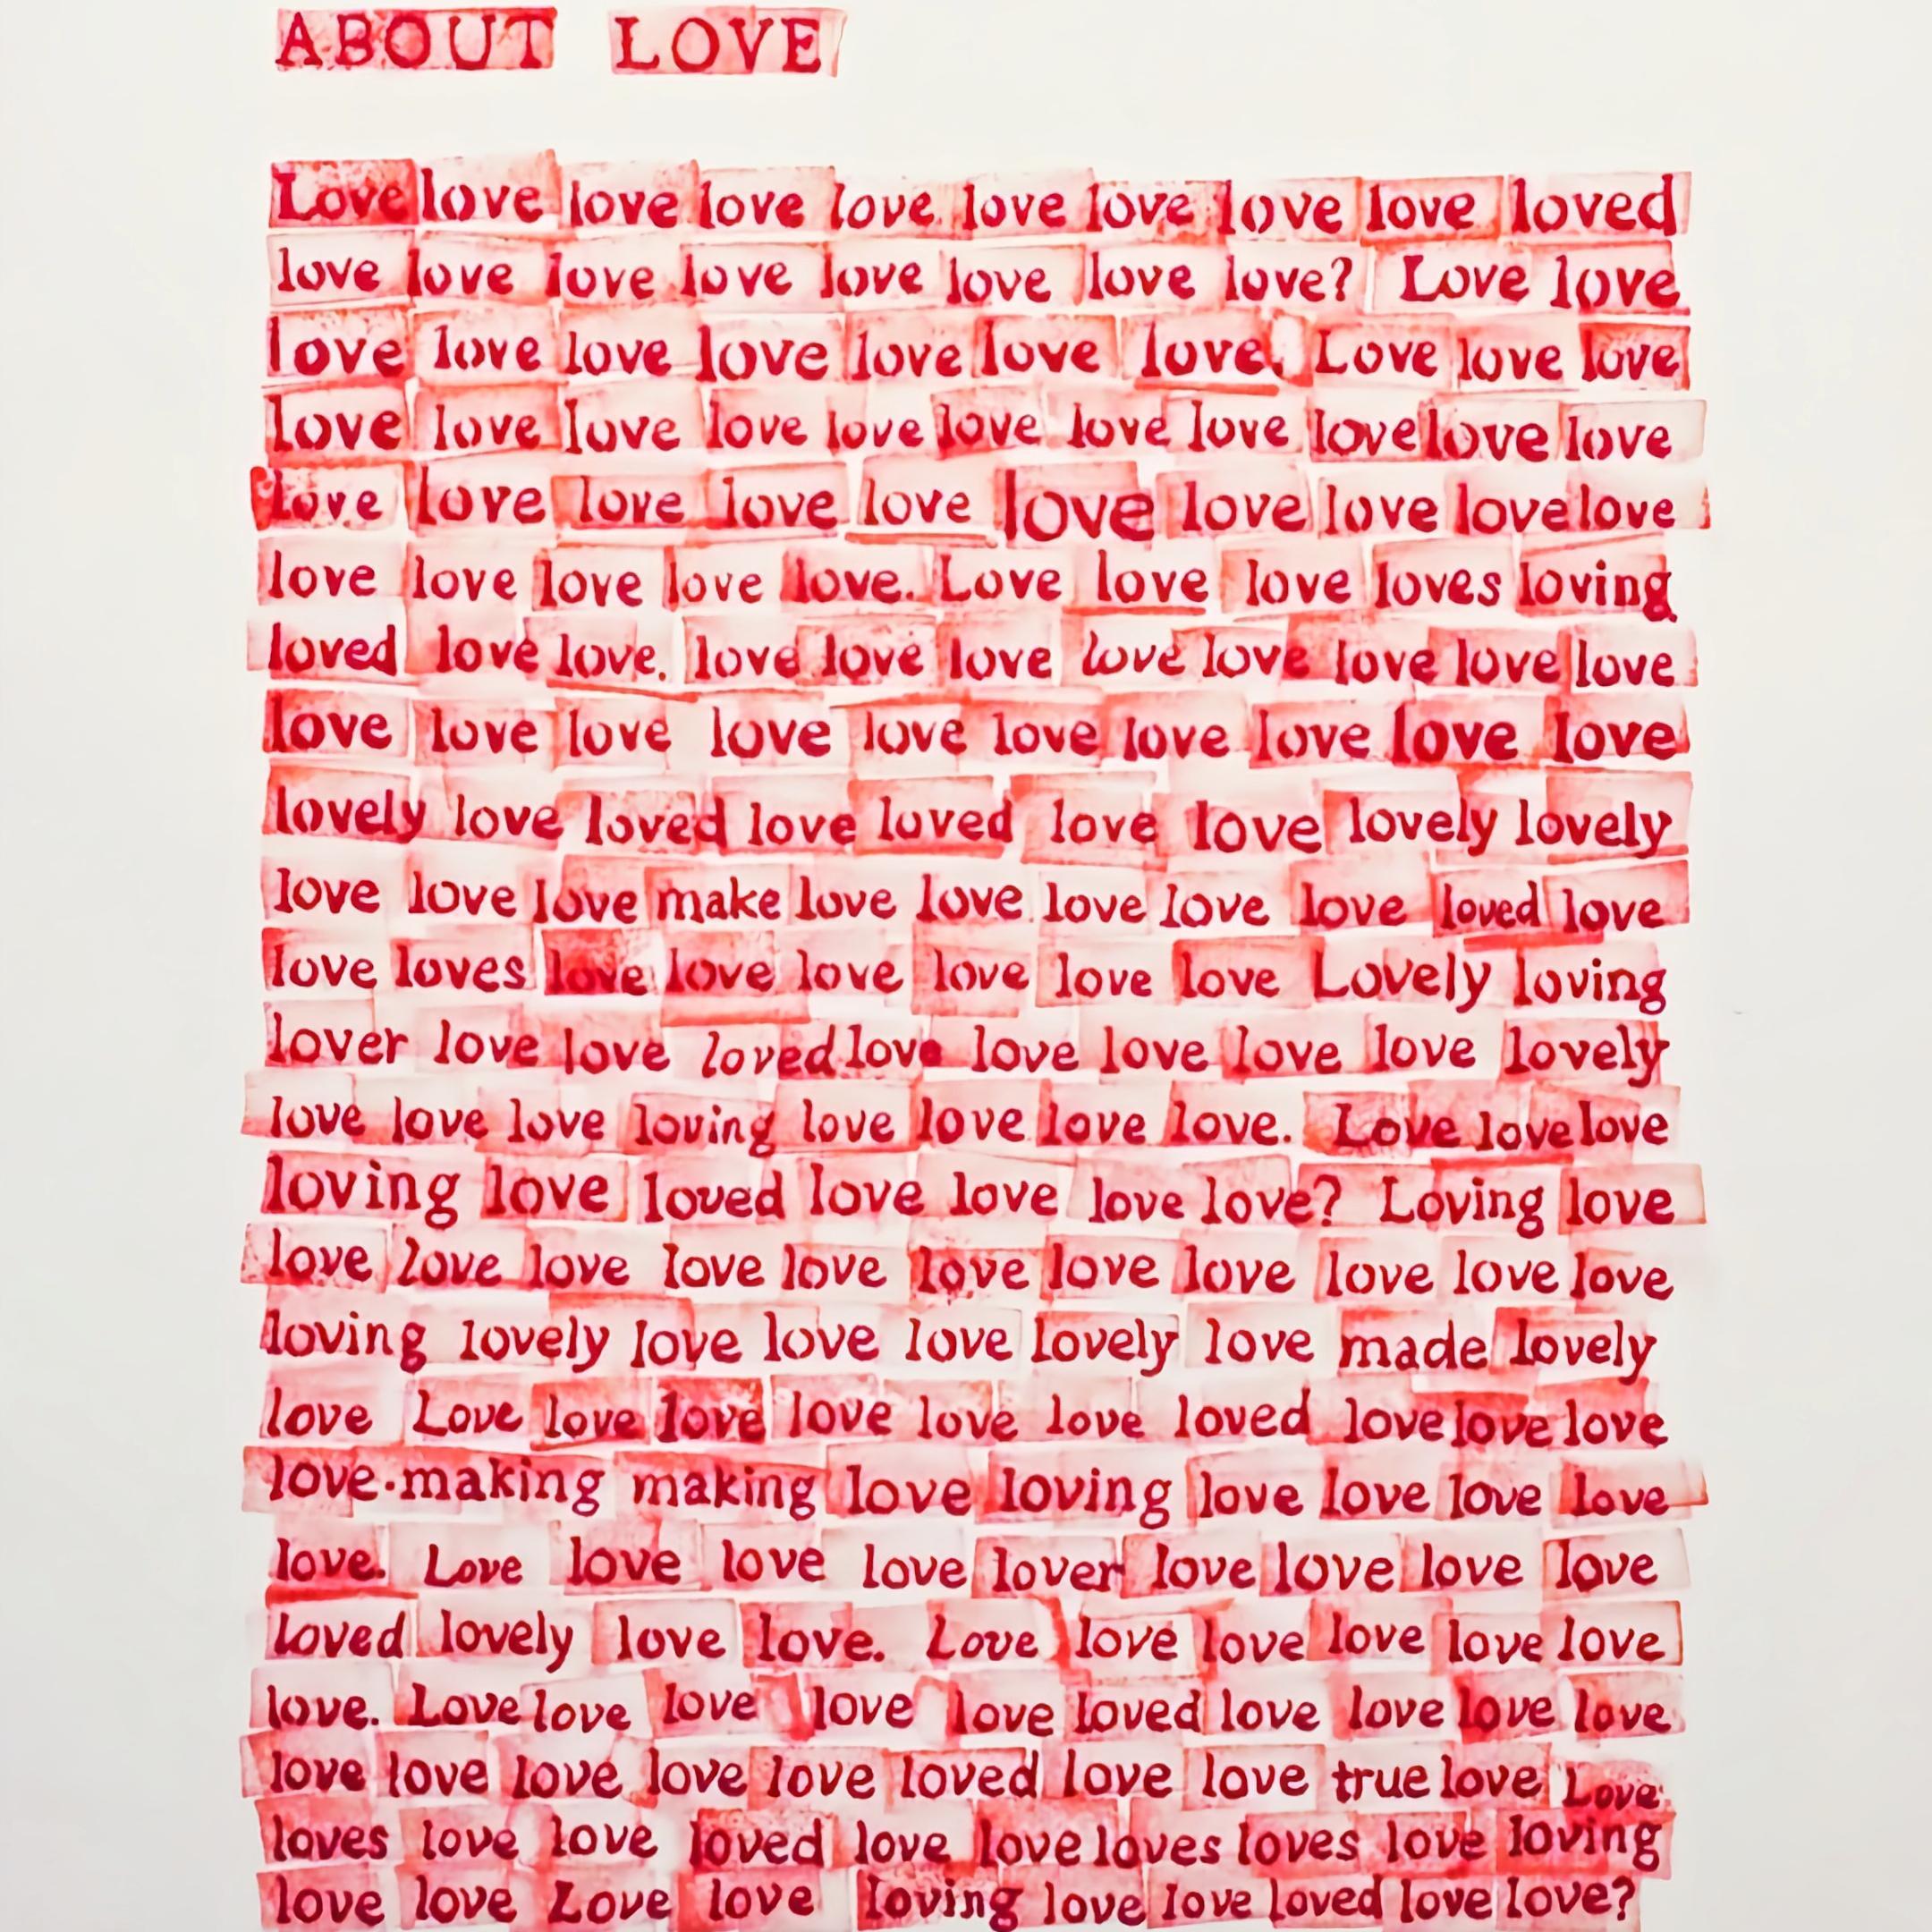 ABOUT LOVE
Love love love love love love love love love loved
love love love love love love love love? Love love
love love love love love love love. Love love love
love love love love love love love love love love love
love love love love love love love love love love
love love love love love. Love love love loves loving
loved love love. love love love love love love love love
love love love love love love love love love love
lovely love loved love loved love love lovely lovely
love love love make love love love love love loved love
love loves love love love love love love Lovely loving
lover love love loved love love love love love lovely
love love love loving love love love love. Love love love
loving love loved love love love love? Loving love
love love love love love love love love love love love
loving lovely love love love lovely love made lovely
love Love love love love love love loved love love love
love-making making love loving love love love love
love. Love love love love lover love love love love
loved lovely love love. Love love love love love love
love. Love love love love love loved love love love love
love love love love love loved love love true love Love
loves love love loved love love loves loves love loving
love love Love love loving love love loved love love?